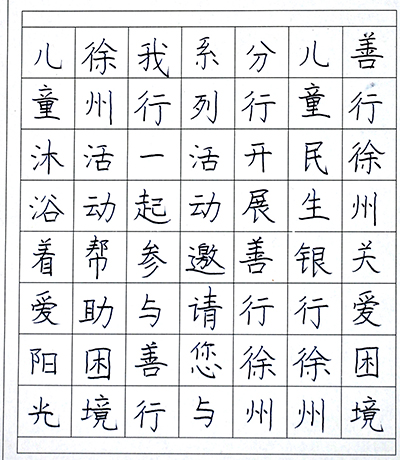 善行徐州关爱困境
儿童民生银行徐州
分行开展善行徐州
系列活动邀请您与
我行一起参与善行
徐州活动帮助困境
儿童沐浴着爱阳光